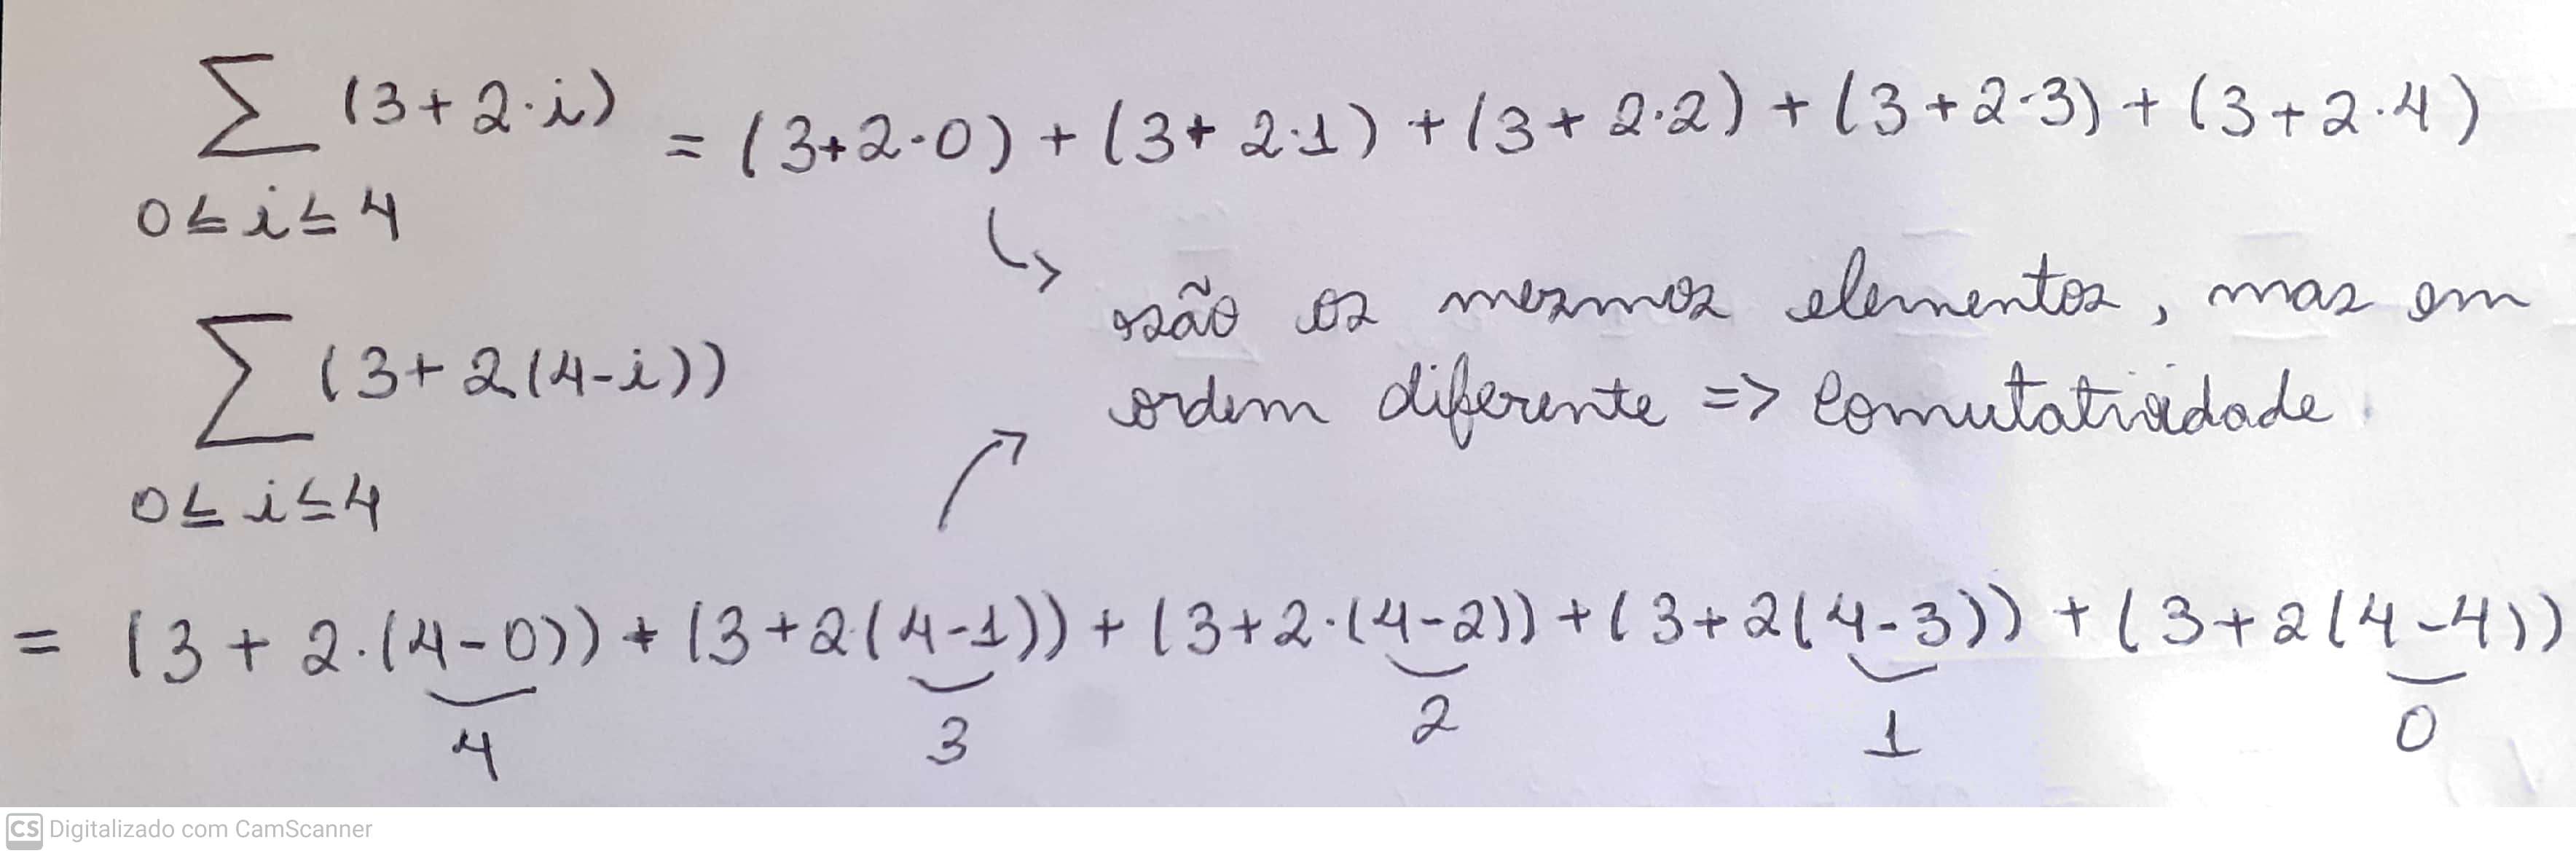 ∑ (3+2·i) = (3+2·0) + (3+2·1) + (3+2·2) + (3+2·3) + (3+2·4)
0≤i≤4
são os mesmos elementos, mas em
∑ (3+2(4-i))
ordem diferente => comutatividade
0≤i≤4
= (3+2·(4-0)) + (3+2·(4-1)) + (3+2·(4-2)) + (3+2(4-3)) + (3+2(4-4))
4 3 2 1 0
CS Digitalizado com CamScanner